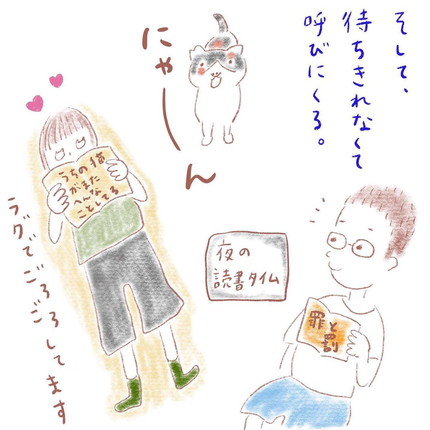 そして、
待ちきれなくて
呼びにくる。
にゃーん
うちの猫
がまた
へんな
ことしてる
ラグでごろごろしてます
夜の
読書タイム
罪と
罰